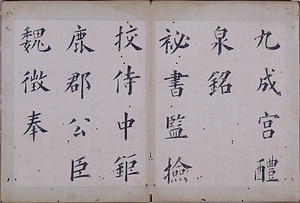 九成宫醴
泉銘
祕書監撿
挍侍中鉅
鹿郡公臣
魏徴奉